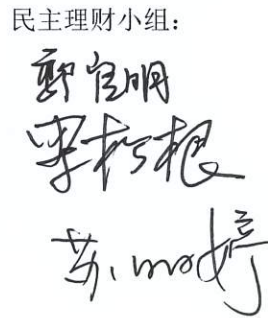 民主理财小组：
郭官明
李根
苏丽婷